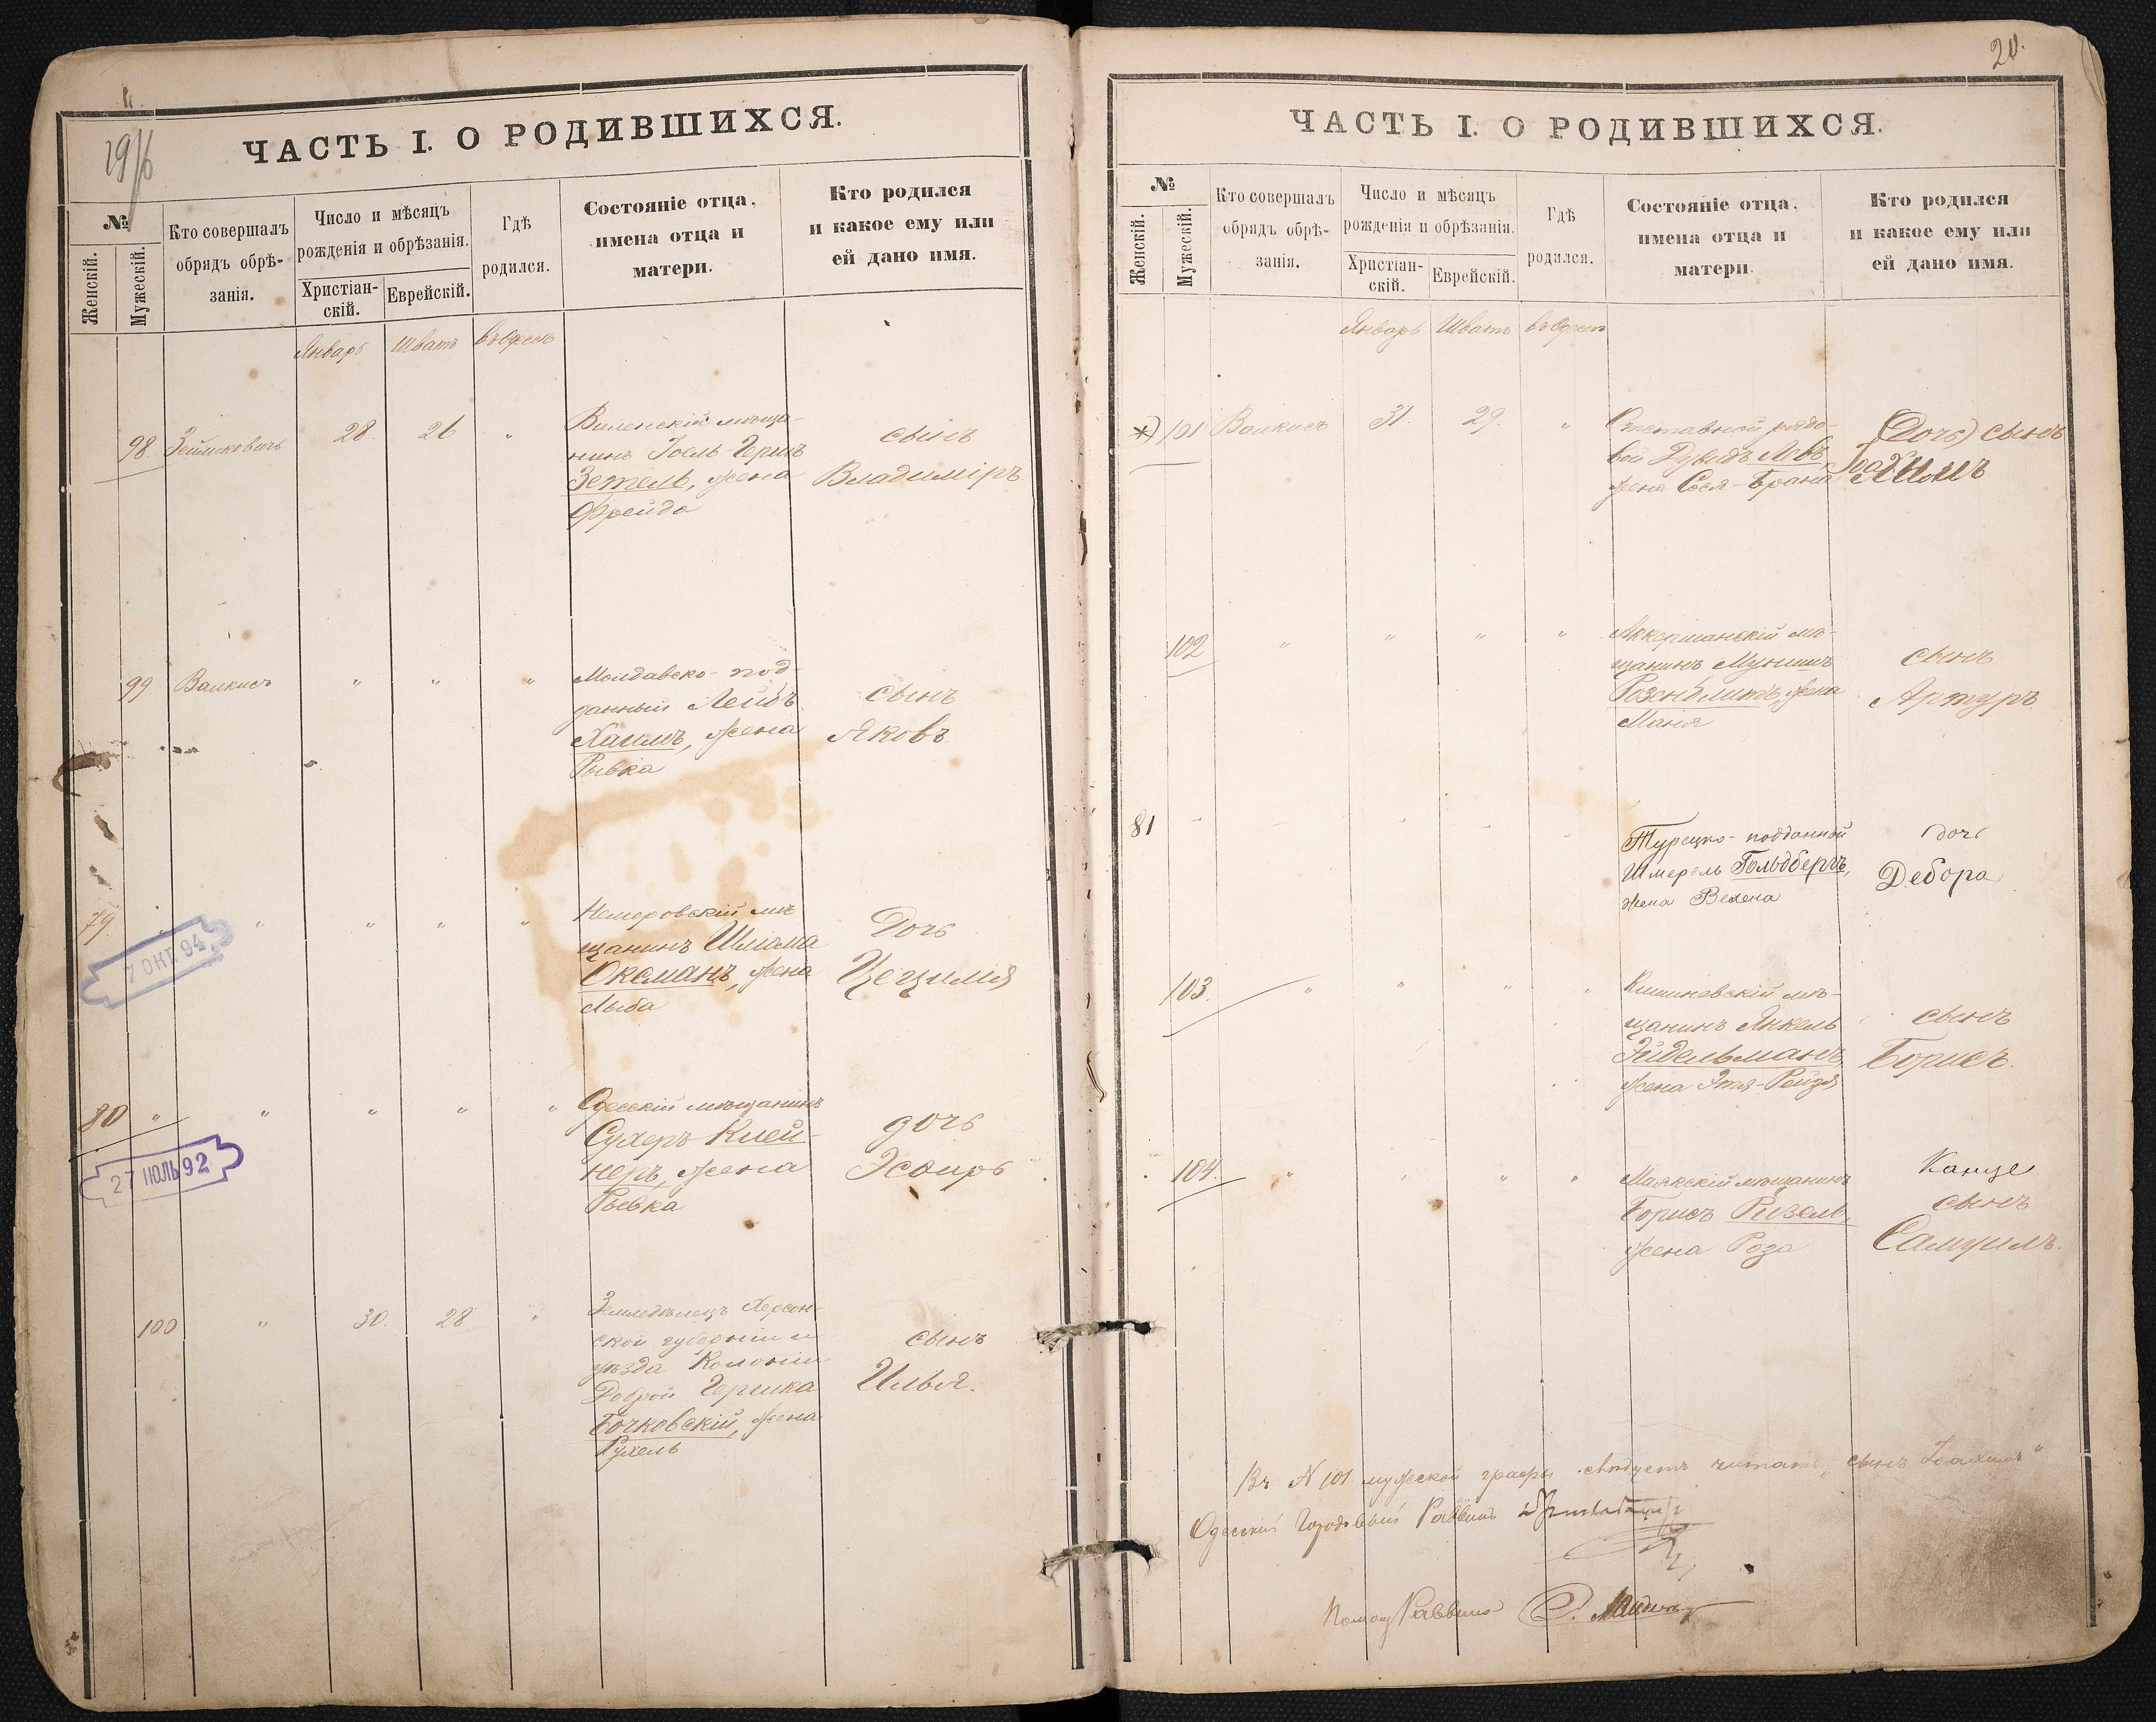 19/76
ЧАСТЬ I. О РОДИВШИХСЯ.
№
Женскій.
Мужескій.
Кто совершалъ
обрядъ обрѣ-
занія.
Число и мѣсяцъ
рожденія и обрѣзанія.
Христіан-
скій.
Еврейскій.
Гдѣ
родился.
Состояніе отца,
имена отца и
матери.
Кто родился
и какое ему или
ей дано имя.
Январь Шватъ въ Одессѣ
98 28 26 "
Виленскій мѣща-
нинъ Іоель-Гершъ
Зетель, жена
Фрейда
сынъ
Владиміръ
99 Валкисъ " " "
Молдавско-под
данный Лейбъ
Хаимъ, жена
Рывка
сынъ
Яковъ
79 " " " " "
7 ОКТ. 94
Немеровскій мѣ
щанинъ Шліома
Оксманъ, жена
Лыба
Дочь
Цецилія
80 " " " " "
27 ІЮЛЬ 92
Одесскій мѣщанинъ
Сухеръ Клей-
неръ, жена
Рывка
дочь
Эсѳирь
100 " 30 28 "
Земледѣлецъ Херсон-
ской губерніи и
уѣзда Колоніи
Доброй Гершка
Бочковскій, жена
Рухель
сынъ
Илья.
20.
ЧАСТЬ I. О РОДИВШИХСЯ.
№
Женскій.
Мужескій.
Кто совершалъ
обрядъ обрѣ-
занія.
Число и мѣсяцъ
рожденія и обрѣзанія.
Христіан-
скій.
Еврейскій.
Гдѣ
родился.
Состояніе отца,
имена отца и
матери.
Кто родился
и какое ему или
ей дано имя.
Январь Шватъ въ Одессѣ
*) 101 Валкисъ 31. 29. "
Отставной рядо-
вой Дувидъ Левъ
жена Сося-Брана
(Дочь) сынъ
Іоахимъ
102 " " " "
Аккерманскій мѣ-
щанинъ Мунишъ
Розенблитъ, жена
Маня
сынъ
Артуръ
81 - - - - -
Турецко-подданный
Шмерель Гольдбергъ,
жена Велена
дочь
Дебора
103. " " " "
Кишиневскій мѣ-
щанинъ Янкель
Эйдельманъ,
жена Этя-Рейзя
сынъ
Борисъ.
104. " " " "
Маякскій мѣщанинъ
Борисъ Ризель,
жена Роза
сынъ
Самуилъ.
Въ N 101 мужской графы слѣдуетъ читать „сынъ Іоахимъ"
Одесскій Городовой Раввинъ
Помощ Раввина